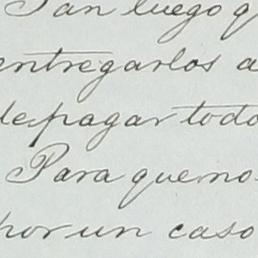 Tan luego q
entregarlos a
de pagar todo
Para que no
por un caso